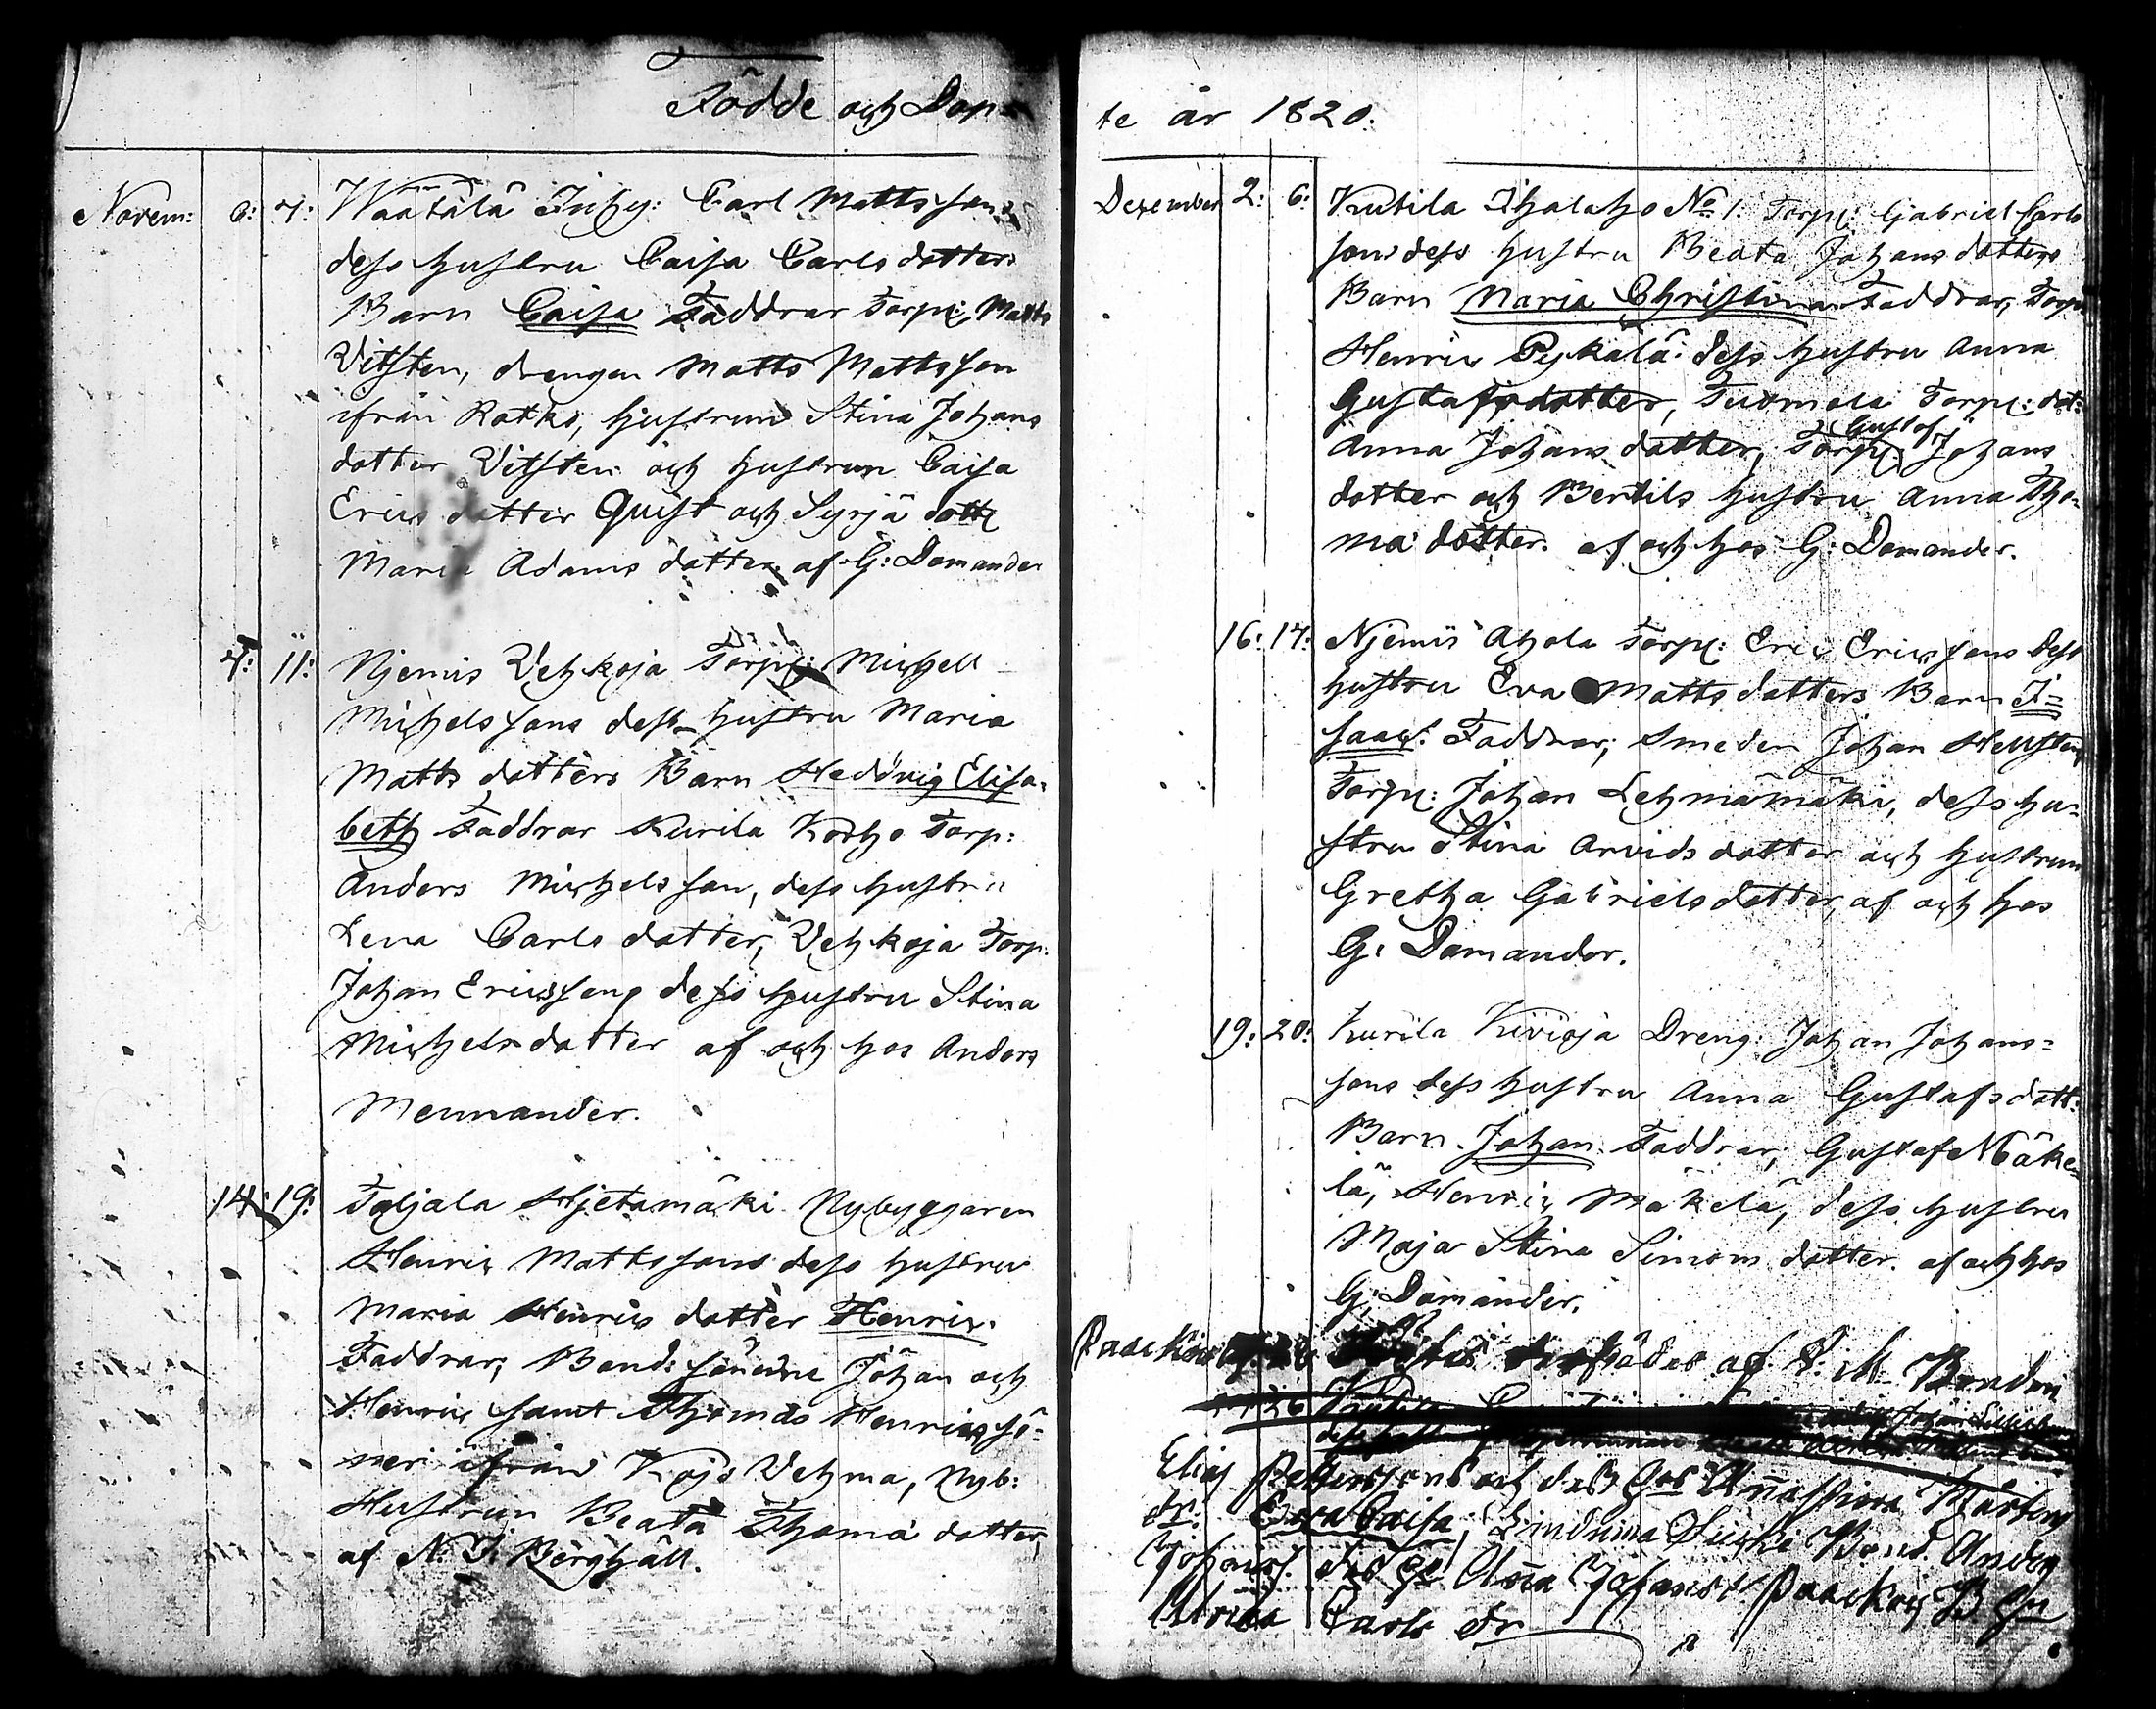 Födde och Dop=
Novem: 6: 7: Wäätälä Inhy: Carl Mattssons
dess hustru Caisa Carls dotters
Barn Caisa Faddrar Torp: Matts
Vitsten, drengen Matts Mattsson
ifrån Rotko, hustrun Stina Johans
dotter Vitsten och hustrun Caisa
Erics dotter Quist och Syrjä dott:
Maria Adams dotter af G: Domander
7: 11: Njemis Vehkoja Torp: Michell
Michelssons dess hustru Maria
Matts dotters Barn Heddvig Elisa=
beth Faddrar Kurila Korho Torp:
Anders Michelsson, dess hustru
Lena Carls dotter, Vehkoja Torp.
Johan Ericsson, dess hustru Stina
Michels dotter af och hos Anders
Mennander.
14: 19: Taljala Hjetamäki Nybyggaren
Henric Mattssons dess hustru
Maria Henrics dotter Henric.
Faddrar, Bond: sönerne Johan och
Henric samt Thomas Henrics sö=
ner ifrån Kojo Vehma, Nyb:
Hustrun Beata Thoma dotter,
af N: J: Berghäll.
te år 1820:
December 2: 6: Kutila Ihalaho No 1: Torp: Gabriel Carls
sons dess hustru Beata Johans dotters
Barn Maria Christina Faddrar, Torp:
Henric Pykälä: dess hustru Anna
Gustafs dotter, Tuomola Torp: dot:
Gustaf
Anna Johans dotter, Torp: Johans
dotter och Bertils hustru Anna Tho=
ma dotter. af och hos G: Domander.
16: 17: Njemis Ahola Torp: Eric Ericssons dess
hustru Eva Matts dotters Barn I=
saac: Faddrar; Smeden Johan Hellsten,
Torp: Johan Lehmämäki, dess hu=
stru Stina Arvids dotter och hustrun
Gretha Gabriels dotter, af och hos
G: Domander.
19: 20: Kurila Kivioja Dreng: Johan Johans=
sons dess hustru Anna Gustafs dott:
Barn Johan. Faddrar, Gustaf Mäke=
lä, Henric Mäkelä, dess hustru
Maja Stina Simons dotter. af och hos
G: Domander.
af P. M. Bonden
26
Elias Petterssons och dess Anna Stina
dr: Eva Caisa; Bond. Anders
Johans dr
Ulrica Carls dr